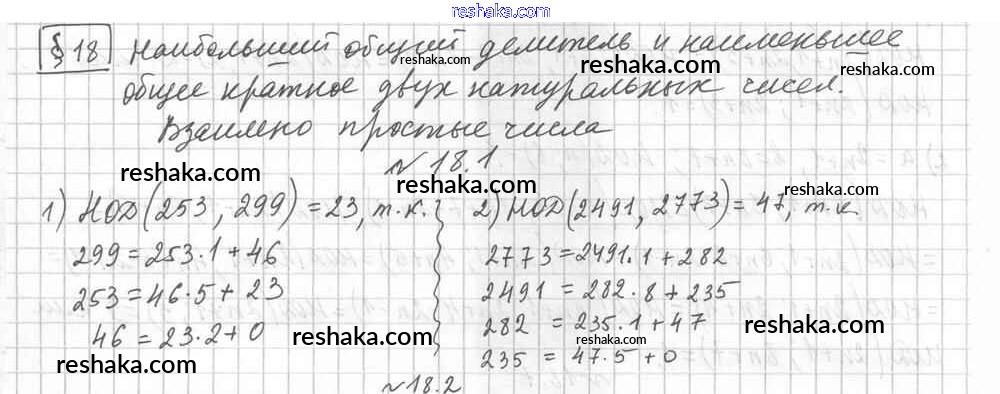 reshaka.com
§ 18 Наибольший общий делитель и наименьшее
reshaka.com
reshaka.com
общее кратное двух натуральных чисел.
Взаимно простые числа
reshaka.com
№18.1
reshaka.com
reshaka.com
1) НОД(253, 299) = 23, т.к.
299 = 253·1 + 46
253 = 46·5 + 23
46 = 23·2 + 0
2) НОД(2491, 2773) = 47, т.к.
2773 = 2491·1 + 282
2491 = 282·8 + 235
282 = 235·1 + 47
235 = 47·5 + 0
reshaka.com
reshaka.com
reshaka.com
reshaka.com
№18.2